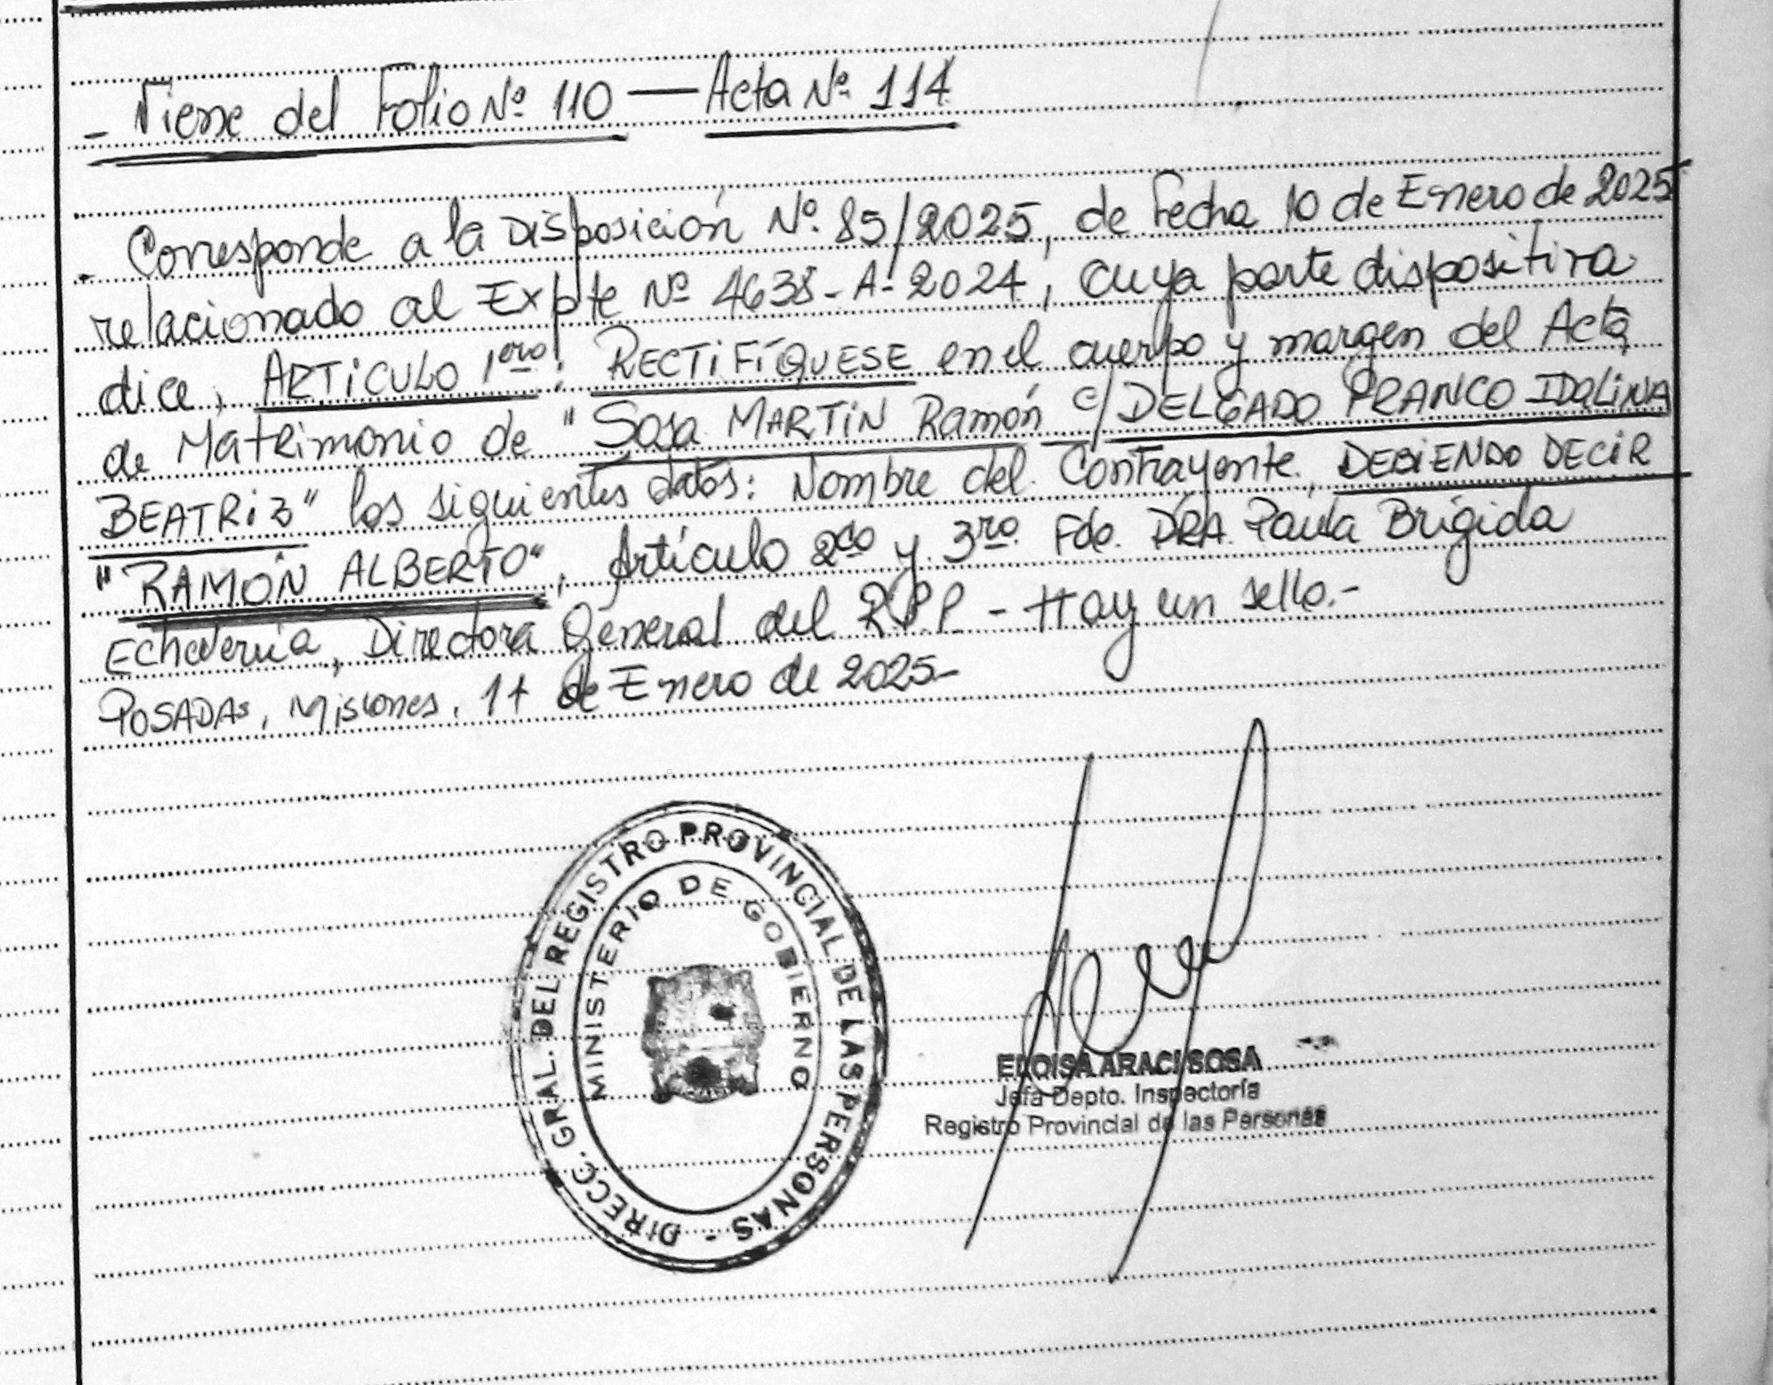 - Viene del Folio Nº 110 — Acta Nº 114
- Corresponde a la Disposición Nº 85/2025, de Fecha 10 de Enero de 2025
relacionado al Expte Nº 4638-A-2024, cuya parte dispositiva
dice, ARTICULO 1ero: RECTIFÍQUESE en el cuerpo y margen del Acta
de Matrimonio de "Sosa MARTIN Ramón c/ DELGADO FRANCO IDALINA
BEATRIZ" los siguientes datos: Nombre del Contrayente, DEBIENDO DECIR
"RAMÓN ALBERTO", Artículo 2do y 3ro. Fdo. DRA. Paula Brígida
Echeverria, Directora General del RPP - Hay un sello.-
POSADAS, Misiones, de Enero de 2025-
DIRECC. GRAL. DEL REGISTRO PROVINCIAL DE LAS PERSONAS -
MINISTERIO DE GOBIERNO
ELOISA ARACI SOSA
Jefa Depto. Inspectoría
Registro Provincial de las Personas